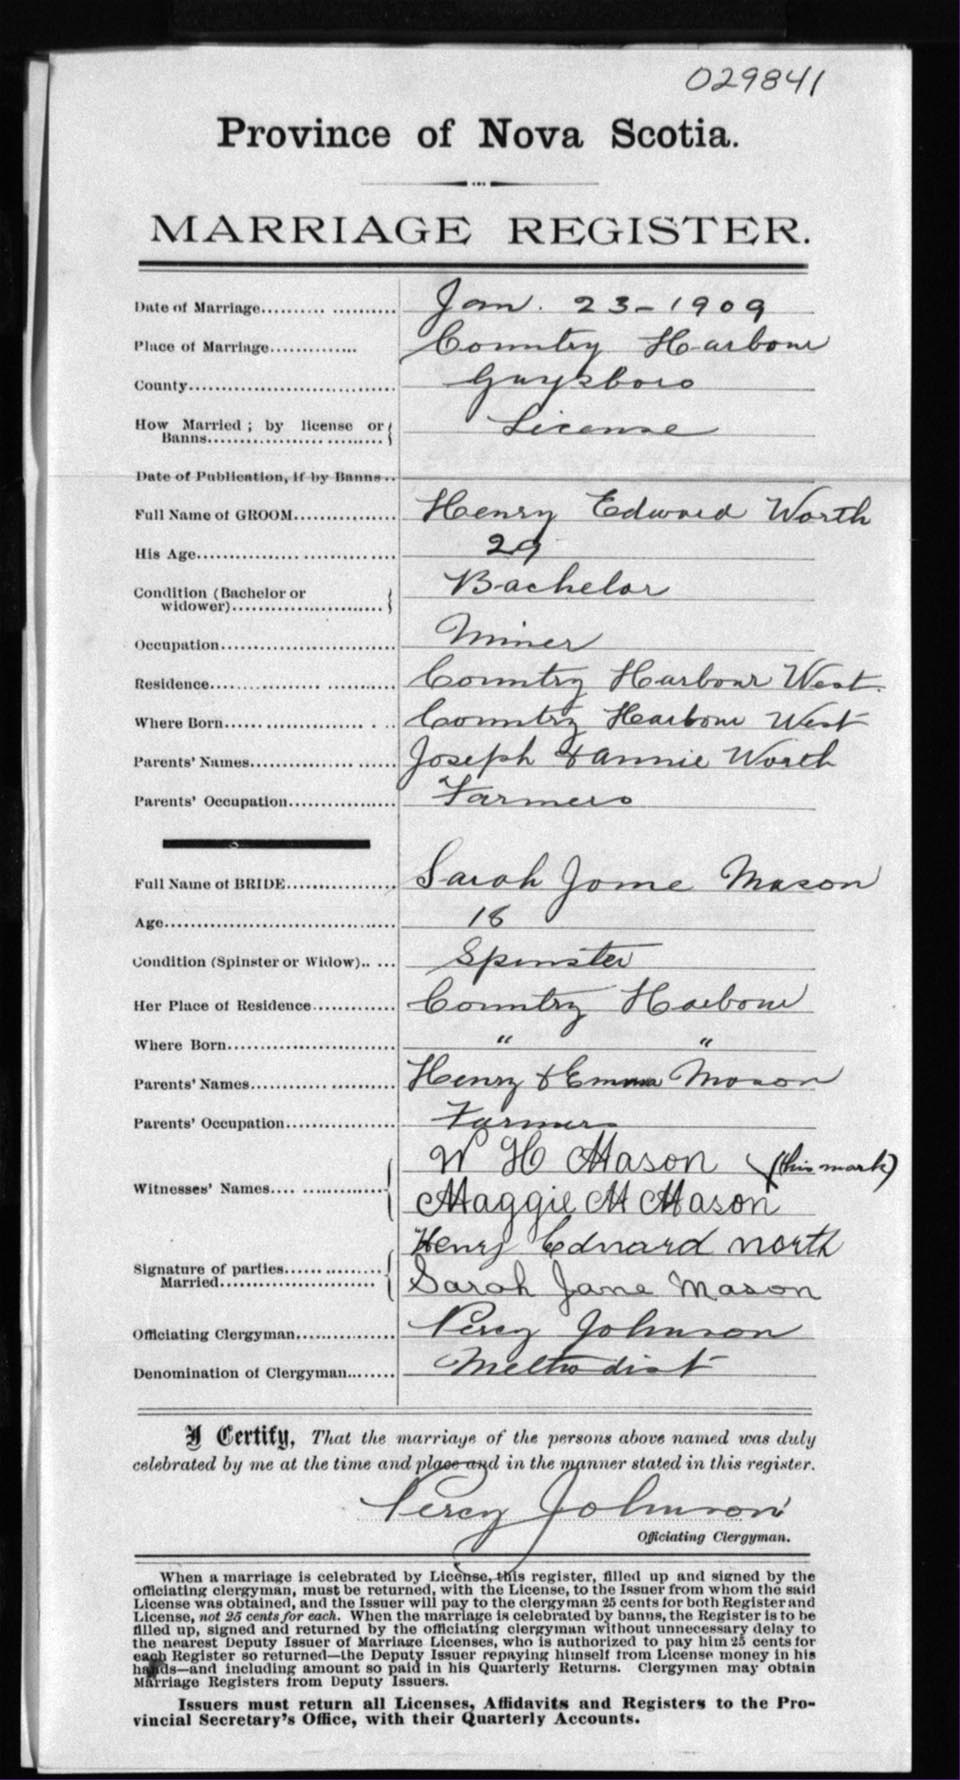 029841
Province of Nova Scotia.
MARRIAGE REGISTER.
Date of Marriage Jan. 23-1909
Place of Marriage Country Harbour
County Guysboro
How Married; by license or Banns License
Date of Publication, if by Banns
Full Name of GROOM Henry Edward Worth
His Age 29
Condition (Bachelor or widower) Bachelor
Occupation Miner
Residence Country Harbour West.
Where Born Country Harbour West
Parents' Names Joseph & Annie Worth
Parents' Occupation Farmers
Full Name of BRIDE Sarah Jane Mason
Age 18
Condition (Spinster or Widow) Spinster
Her Place of Residence Country Harbour
Where Born " "
Parents' Names Henry & Emma Mason
Parents' Occupation Farmers
Witnesses' Names W H Mason (his mark)
Maggie M Mason
Signature of parties Married Henry Edward North
Sarah Jane Mason
Officiating Clergyman Percy Johnson
Denomination of Clergyman Methodist
I Certify, That the marriage of the persons above named was duly
celebrated by me at the time and place and in the manner stated in this register.
Percy Johnson
Officiating Clergyman.
When a marriage is celebrated by License, this register, filled up and signed by the
officiating clergyman, must be returned, with the License, to the Issuer from whom the said
License was obtained, and the Issuer will pay to the clergyman 25 cents for both Register and
License, not 25 cents for each. When the marriage is celebrated by banns, the Register is to be
filled up, signed and returned by the officiating clergyman without unnecessary delay to
the nearest Deputy Issuer of Marriage Licenses, who is authorized to pay him 25 cents for
each Register so returned—the Deputy Issuer repaying himself from License money in his
hands—and including amount so paid in his Quarterly Returns. Clergymen may obtain
Marriage Registers from Deputy Issuers.
Issuers must return all Licenses, Affidavits and Registers to the Pro-
vincial Secretary's Office, with their Quarterly Accounts.